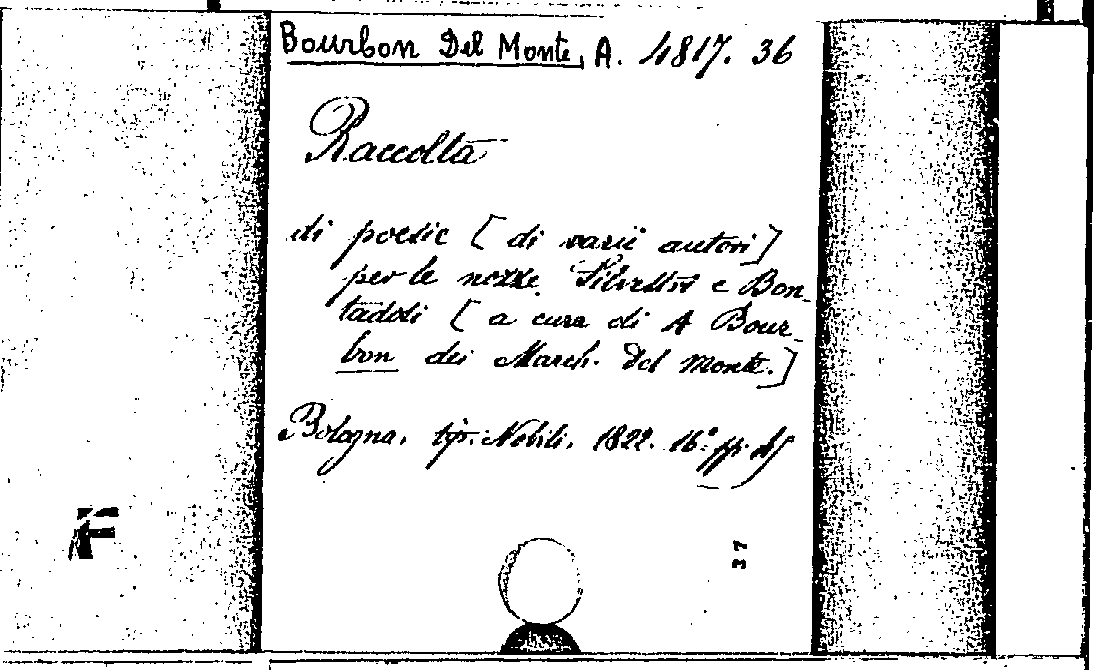 Bourbon Del Monte, A. 4817. 36
Raccolta
di poesie [ di varii autori ]
per le nozze e Bon-
tadosi [ a cura di A Bour-
bon dei March. Del Monte. ]
Bologna. tip. Nobili. 1822. 16º pp.
F
37